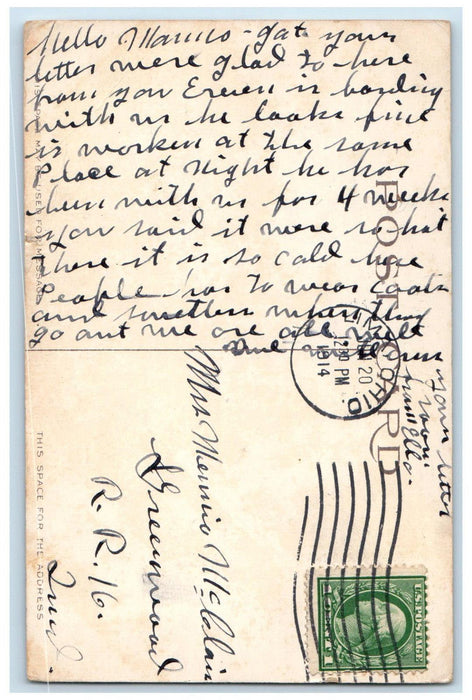 Hello Mamio - got your
letter were glad to here
from you Erwen is boarding
with us he looks fine
is worken at the same
Place at Night he has
been with us for 4 weeks
you said it were so hot
there it is so cold here
People has to wear coats
and somethen when they
go out we are all well
and
your letter
soon.
from Ella.
POST CARD
20
2 30 PM
1914
OHIO
THIS SPACE MAY BE USED FOR MESSAGE
THIS SPACE FOR THE ADDRESS
Mrs Mennio McClain
Greenwood
R. R. 16.
Ind.
U.S. POSTAGE